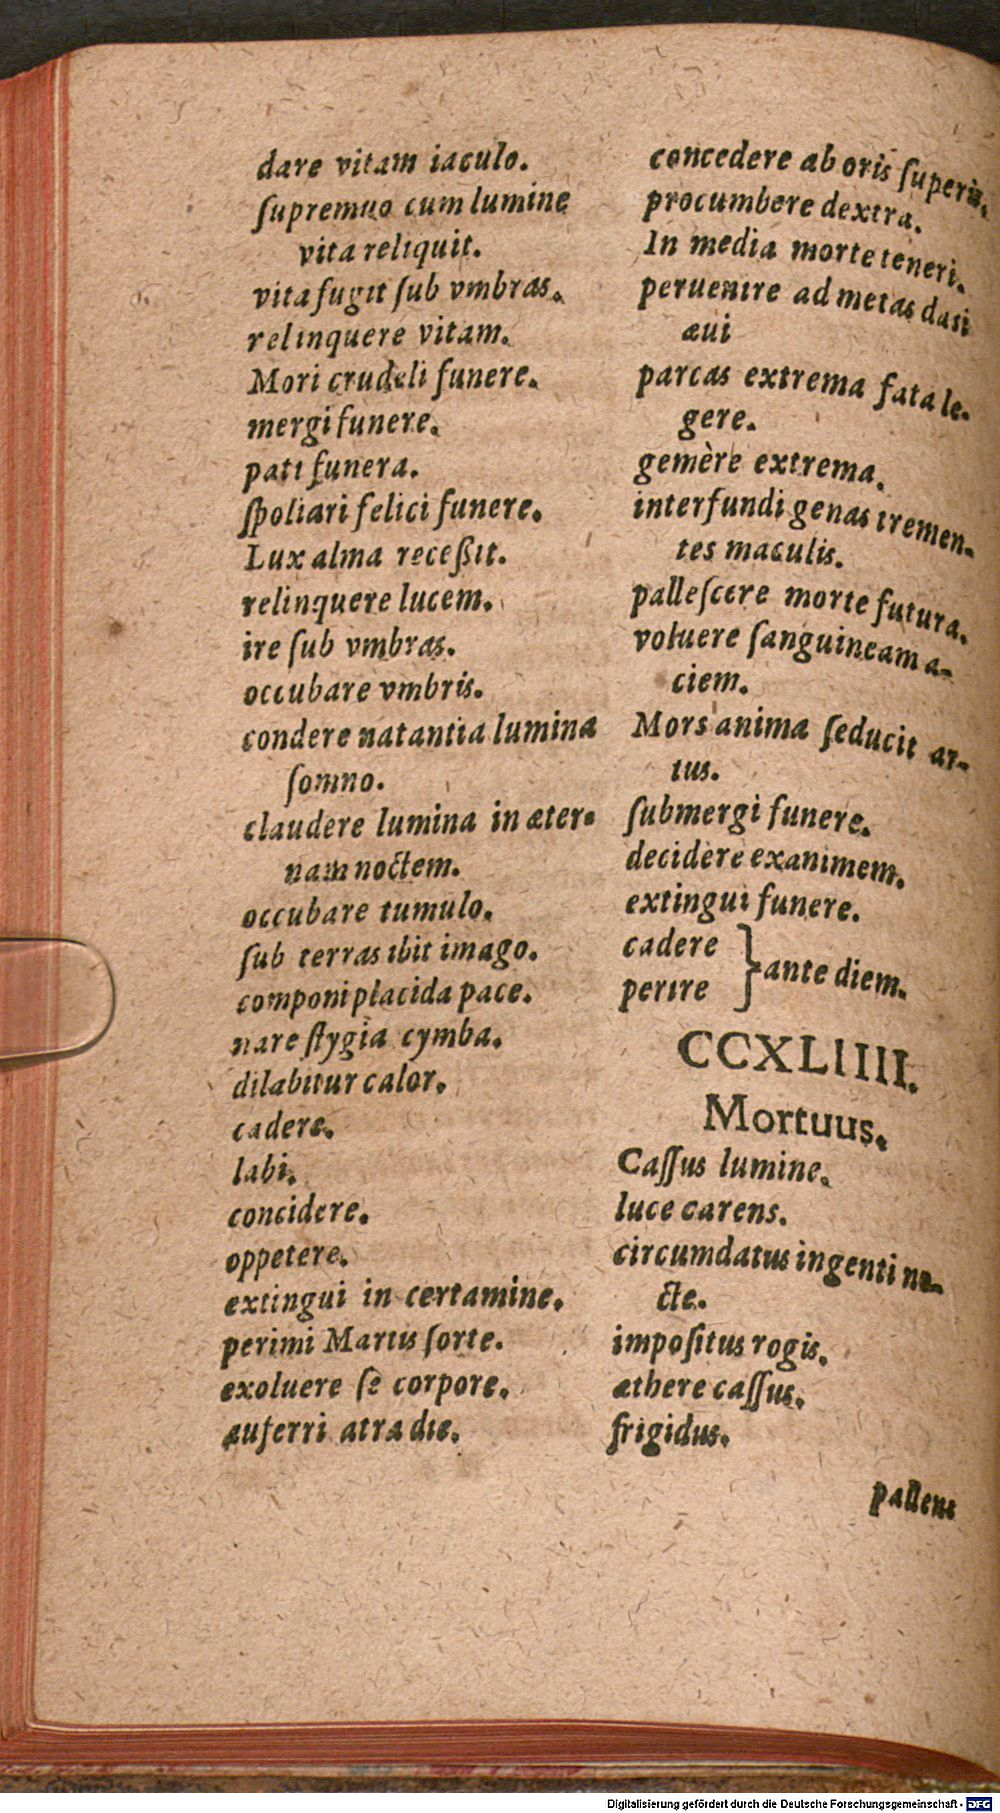 dare vitam iaculo.
ſupremuo cum lumine
vita reliquit.
vita fugit ſub vmbras.
relinquere vitam.
Mori crudeli funere.
mergi funere.
pati funera.
ſpoliari felici funere.
Lux alma receßit.
relinquere lucem.
ire ſub vmbras.
occubare vmbris.
condere natantia lumina
ſomno.
claudere lumina in æter-
nam noctem.
occubare tumulo.
ſub terras ibit imago.
componi placida pace.
nare ſtygia cymba.
dilabitur calor.
cadere.
labi.
concidere.
oppetere.
extingui in certamine.
perimi Martis ſorte.
exoluere ſe corpore.
auferri atra die.
concedere ab oris ſuperis.
procumbere dextra.
In media morte teneri.
peruenire ad metas dati
æui
parcas extrema fata le-
gere.
gemère extrema.
interfundi genas tremen-
tes maculis.
palleſcere morte futura.
voluere ſanguineam a-
ciem.
Mors anima ſeducit ar-
tus.
ſubmergi funere.
decidere exanimem.
extingui funere.
cadere
perire } ante diem.
CCXLIIII.
Mortuus.
Caſſus lumine.
luce carens.
circumdatus ingenti no-
cte.
impoſitus rogis.
æthere caſſus.
frigidus.
pallens
Digitalisierung gefördert durch die Deutsche Forschungsgemeinschaft - DFG